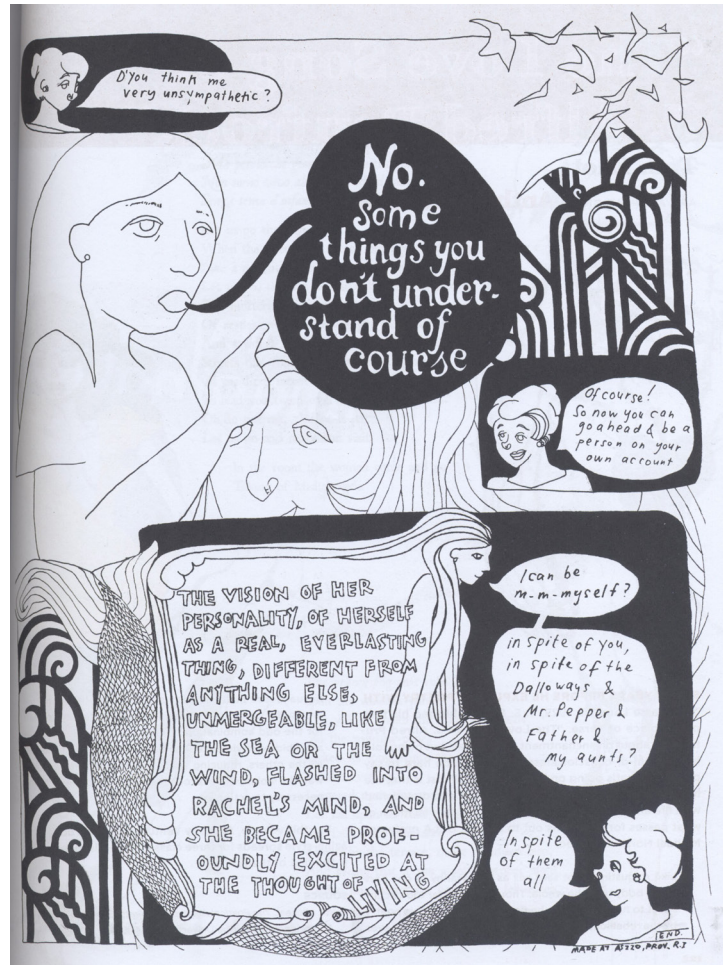 D'you think me
very unsympathetic?
No.
Some
things you
don't under-
stand of
course
Of course!
So now you can
go ahead & be a
person on your
own account
THE VISION OF HER
PERSONALITY, OF HERSELF
AS A REAL, EVERLASTING
THING, DIFFERENT FROM
ANYTHING ELSE,
UNMERGEABLE, LIKE
THE SEA OR THE
WIND, FLASHED INTO
RACHEL'S MIND, AND
SHE BECAME PROF-
OUNDLY EXCITED AT
THE THOUGHT OF LIVING
I can be
m-m-myself?
in spite of you,
in spite of the
Dalloways &
Mr. Pepper &
Father &
my aunts?
In spite
of them
all
END.
MADE AT RIZZO, PROV. R.I